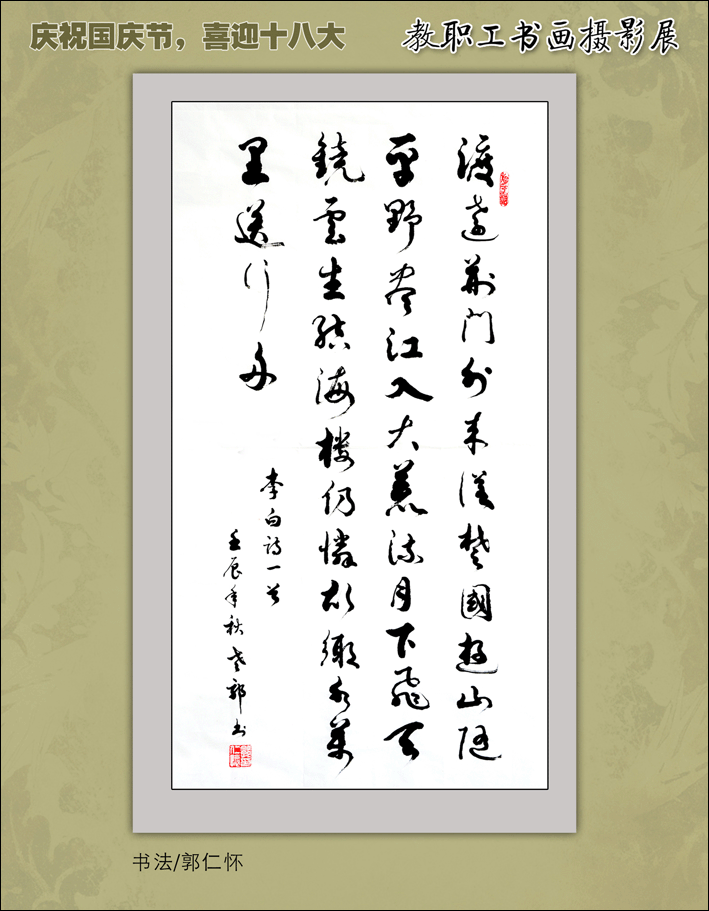 庆祝国庆节，喜迎十八大
教职工书画摄影展
渡遠荊門外来從楚國遊山随
平野盡江入大荒流月下飛天
鏡雲生結海楼仍憐故鄉水萬
里送行舟
李白诗一首
壬辰年秋老郭书
书法/郭仁怀